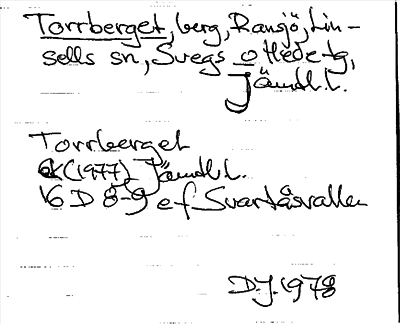 Torrberget, berg, Ransjö, Lin-
sells sn, Svegs o Hede tg,
Jämtl.l.
Torrberget
EK(1977) Jämtl.l.
16 D 8-9 e f Svartåsvallen
DJ. 1978